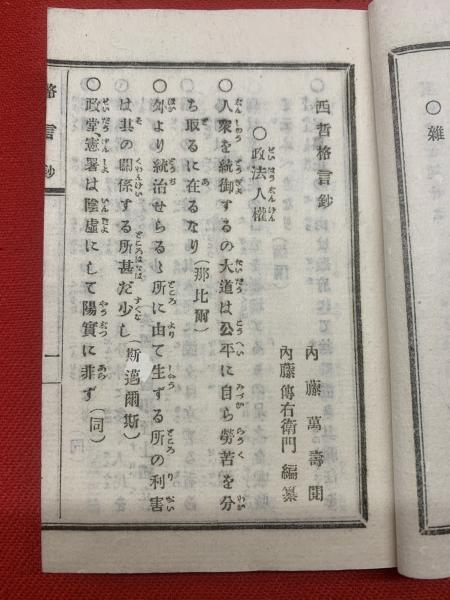 ○雜
西哲格言鈔
內藤萬壽閱
內藤傳右衞門編纂
○政法人權
○人衆を統御するの大道は公平に自ら勞苦を分
ち取るに在るなり(那比爾)
○外より統治せらるゝ所に由て生ずる所の利害
は其の關係する所甚だ少し(斯邁爾斯)
○政堂憲署は陰虛にして陽實に非ず(同)
格言鈔
一